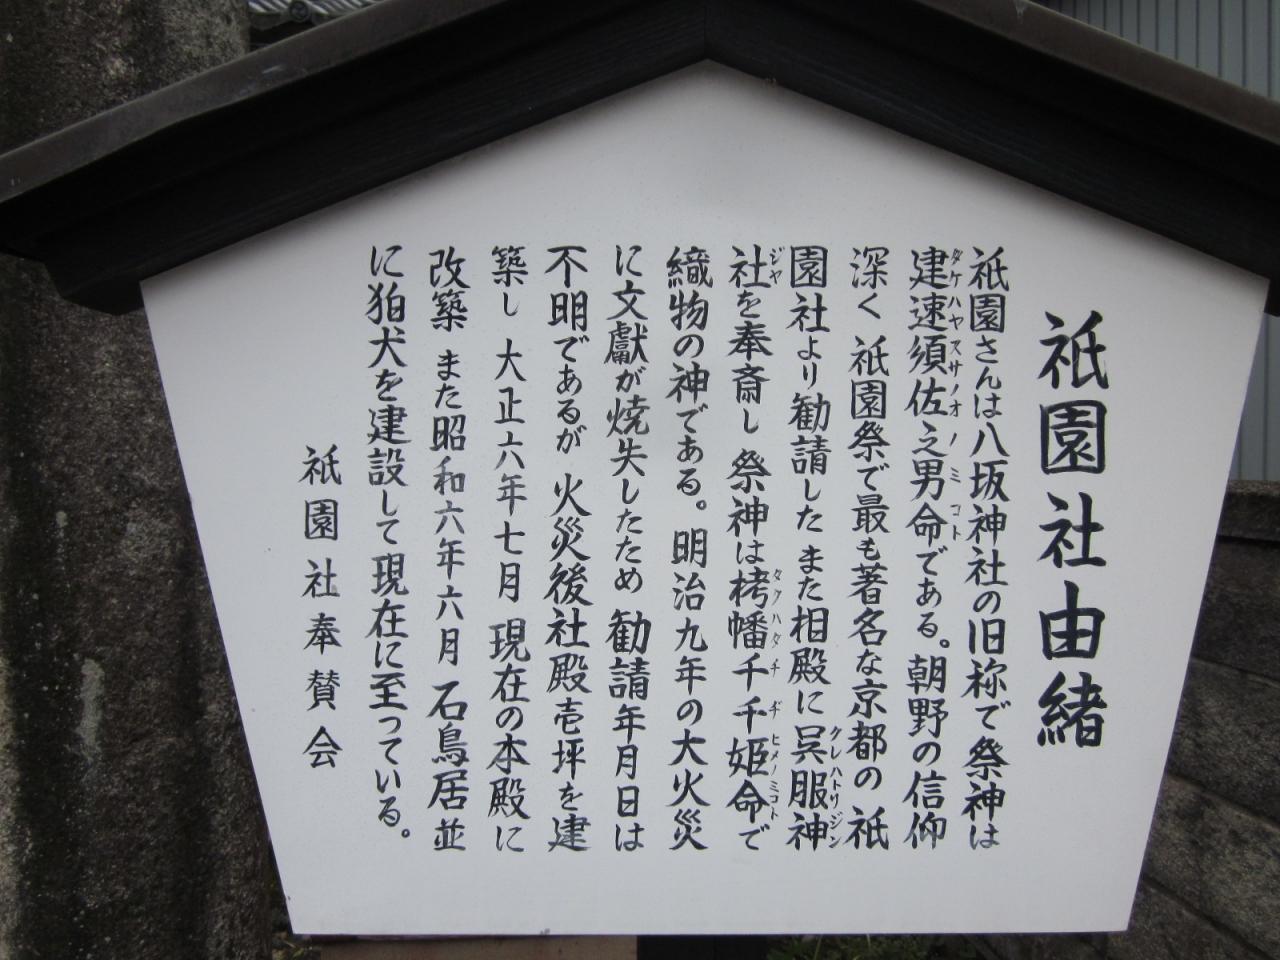 祇園社由緒
祇園さんは八坂神社の旧称で祭神は
建速須佐之男命である。朝野の信仰
タケハヤスサノオノミコト
深く 祇園祭で最も著名な京都の 祇
園社より勧請した また相殿に呉服神
クレハトリジン
社を奉斎し 祭神は栲幡千千姫命で
ジヤ
タクハタチヂヒメノミコト
織物の神である。明治九年の大火災
に文献が焼失したため 勧請年月日は
不明であるが 火災後社殿壱坪を建
築し 大正六年七月 現在の本殿に
改築 また昭和六年六月 石鳥居並
に狛犬を建設して現在に至っている。
祇園社奉賛会